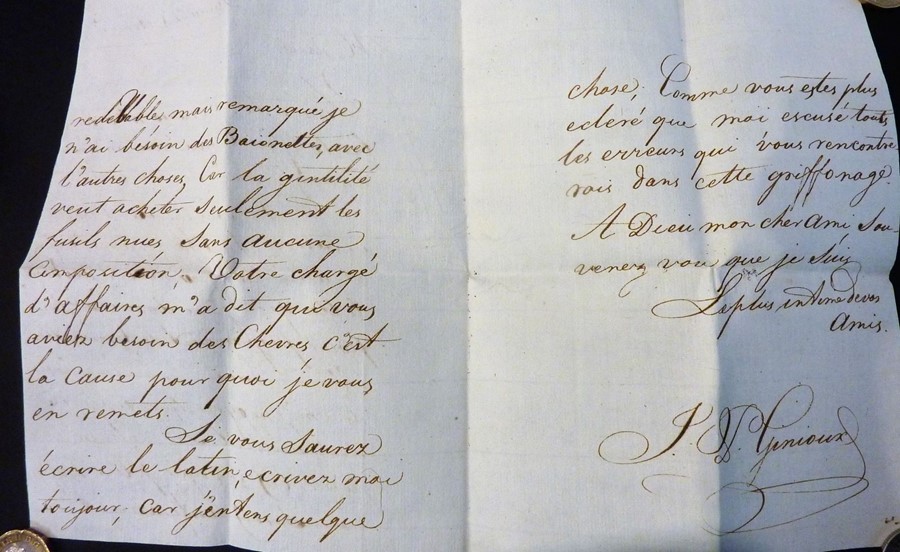 redevables mais remarqué je
n'ai bésoin des Baionettes, avec
l'autres choses, Car la gintilité
veut acheter seulement les
fusils nues sans aucune
Composition. Votre chargé
d'affaires m'a dit que vous
aviez besoin des Chevres c'est
la cause pour quoi je vous
en remets.
Si vous saurez
écrire le latin, ecrivez moi
toujour, car j'entens quelque
chose; Comme vous estes plus
ecleré que moi escusé touts
les erreurs qui vous rencontre-
rois dans cette griffonage.
A Dieu mon cher Ami Sou-
venez vou que je suis
Le plus intime de vos
Amis.
Ginioux